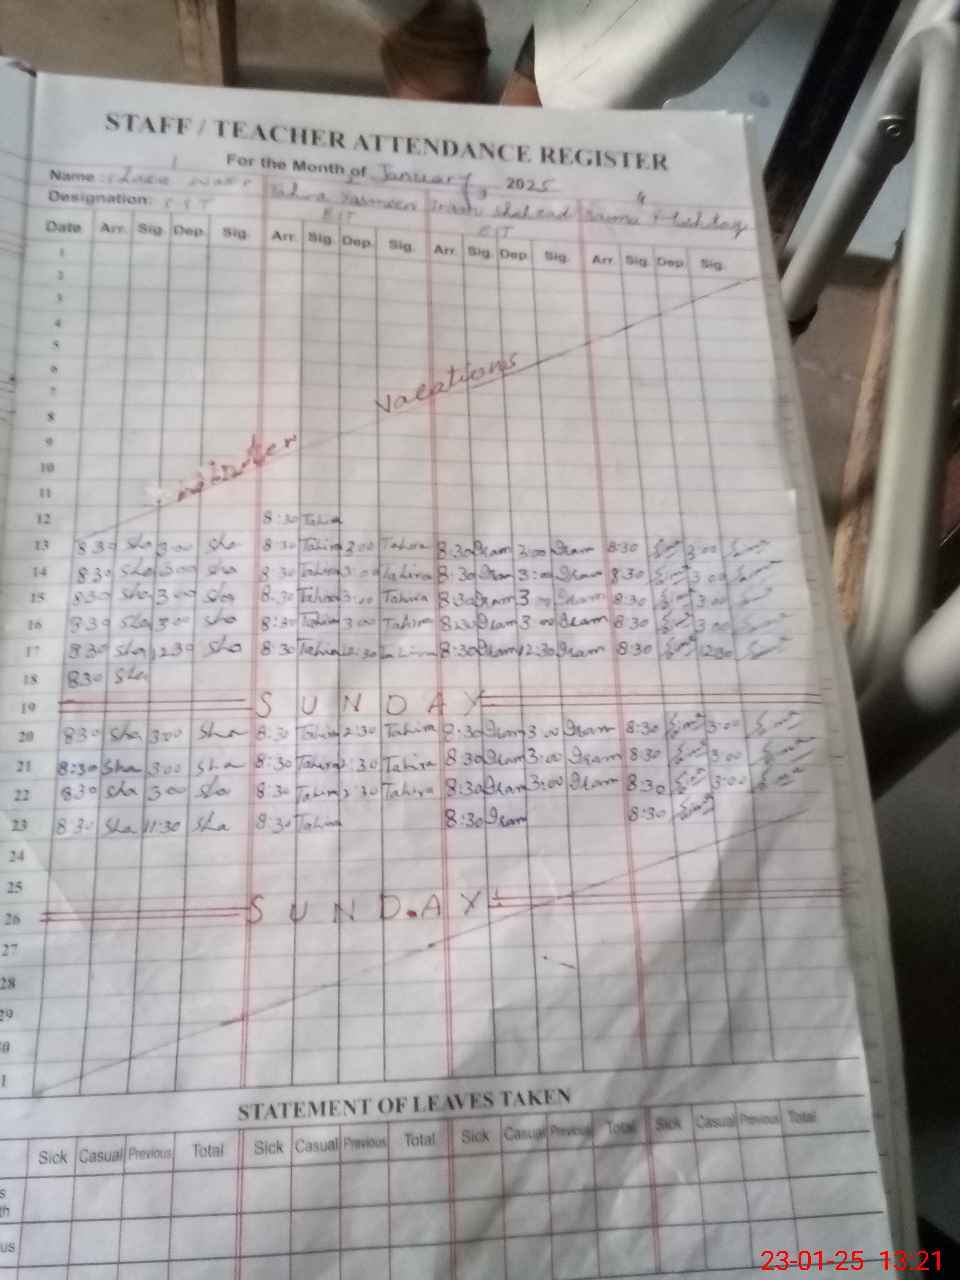 STAFF / TEACHER ATTENDANCE REGISTER
For the Month of January 2025
Name: 1 3 4
Tahira Yasmeen Iram Shahzad
Designation: EST EST EST
Date Arr. Sig. Dep. Sig. Arr. Sig. Dep. Sig. Arr. Sig. Dep. Sig. Arr. Sig. Dep. Sig.
1
2
3
4
5
6
7
vacations
8
9
10
11
12 8:30 Tahira
13 8:30 Sha 3:00 Sha 8:30 Tahira 3:00 Tahira 8:30 Iram 3:00 Iram 8:30 3:00
14 8:30 Sha 3:00 Sha 8:30 Tahira 3:00 Tahira 8:30 Iram 3:00 Iram 8:30 3:00
15 8:30 Sha 3:00 Sha 8:30 Tahira 3:00 Tahira 8:30 Iram 3:00 Iram 8:30 3:00
16 8:30 Sha 3:00 Sha 8:30 Tahira 3:00 Tahira 8:30 Iram 3:00 Iram 8:30 3:00
17 8:30 Sha 12:30 Sha 8:30 Tahira 12:30 Tahira 8:30 Iram 12:30 Iram 8:30 12:30
18 8:30 Sha
19 SUNDAY
20 8:30 Sha 3:00 Sha 8:30 Tahira 2:30 Tahira 8:30 Iram 3:00 Iram 8:30 3:00
21 8:30 Sha 3:00 Sha 8:30 Tahira 2:30 Tahira 8:30 Iram 3:00 Iram 8:30 3:00
22 8:30 Sha 3:00 Sha 8:30 Tahira 2:30 Tahira 8:30 Iram 3:00 Iram 8:30 3:00
23 8:30 Sha 11:30 Sha 8:30 Tahira 8:30 Iram 8:30
24
25
26 SUNDAY
27
28
29
0
1
STATEMENT OF LEAVES TAKEN
Sick Casual Previous Total Sick Casual Previous Total Sick Casual Previous Total Sick Casual Previous Total
s
th
us
23-01-25 13:21